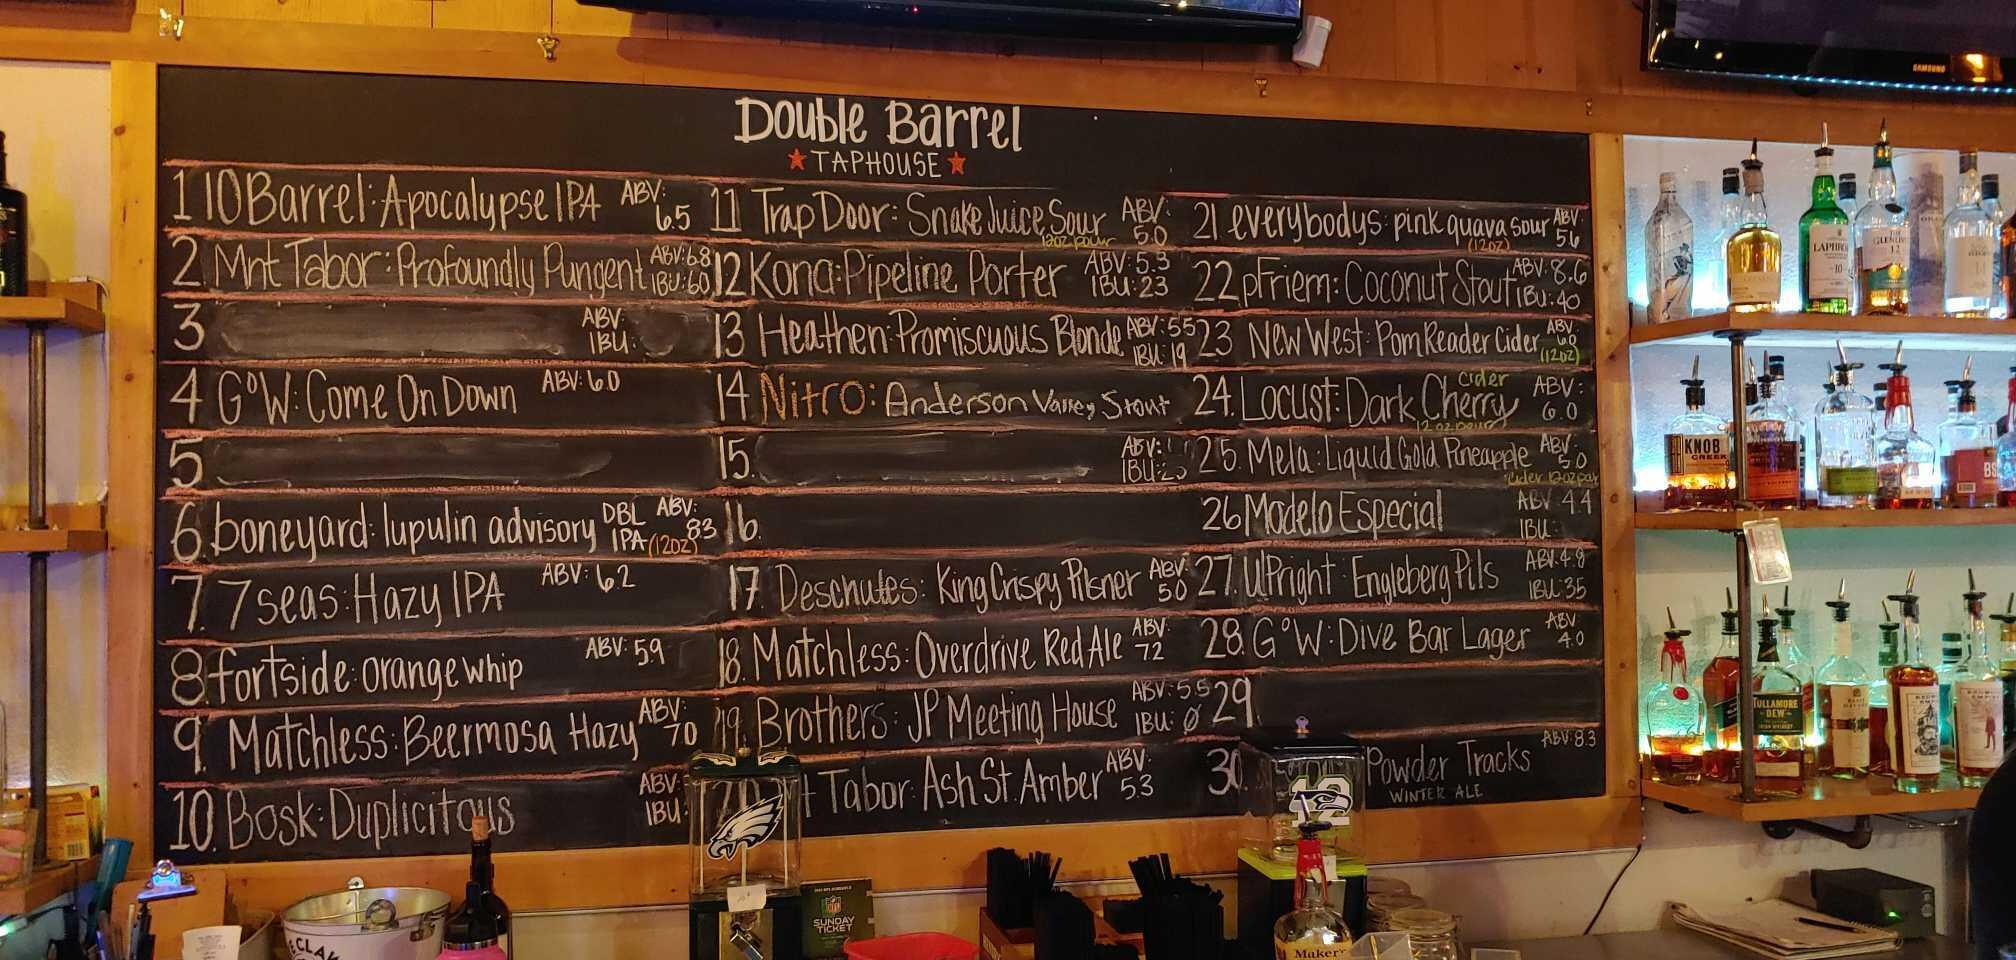 Double Barrel
TAPHOUSE
1 10 Barrel: Apocalypse IPA ABV: 6.5
2 Mnt Tabor: Profoundly Pungent ABV: 6.8 IBU: 60
3 ABV: IBU:
4 G°W: Come On Down ABV: 6.0
5
6. boneyard: lupulin advisory DBL IPA (12oz) ABV: 8.3
7. 7 seas: Hazy IPA ABV: 6.2
8. fortside: orange whip ABV: 5.9
9. Matchless: Beermosa Hazy ABV: 7.0
10. Bosk: Duplicitous ABV: IBU:
11 Trap Door: Snake Juice Sour 12oz pour ABV: 5.0
12 Kona: Pipeline Porter ABV: 5.3 IBU: 23
13 Heathen: Promiscuous Blonde ABV: 5.5 IBU: 19
14 Nitro: Anderson Valley Stout
15. ABV: IBU:
16.
17. Deschutes: King Crispy Pilsner ABV: 5.0
18. Matchless: Overdrive Red Ale ABV: 7.2
19. Brothers: JP Meeting House ABV: 5.5 IBU: Ø
20 Tabor: Ash St. Amber ABV: 5.3
21 everybodys: pink guava sour (12oz) ABV: 5.6
22 pFriem: Coconut Stout ABV: 8.6 IBU: 40
23 New West: PomReader Cider ABV: 6.0 (12oz)
24. Locust: Dark Cherry cider 12oz pour ABV: 6.0
25. Mela: Liquid Gold Pineapple ABV: 5.0 cider 12oz pour
26 Modelo Especial ABV 4.4 IBU:
27. UPright: Engleberg Pils ABV: 4.8 IBU: 35
28. G°W: Dive Bar Lager ABV: 4.0
29
30. Powder Tracks WINTER ALE ABV: 8.3
SAMSUNG
LAPHROAIG
10
12
KNOB CREEK
TULLAMORE DEW
NFL
SUNDAY TICKET
12
Maker's